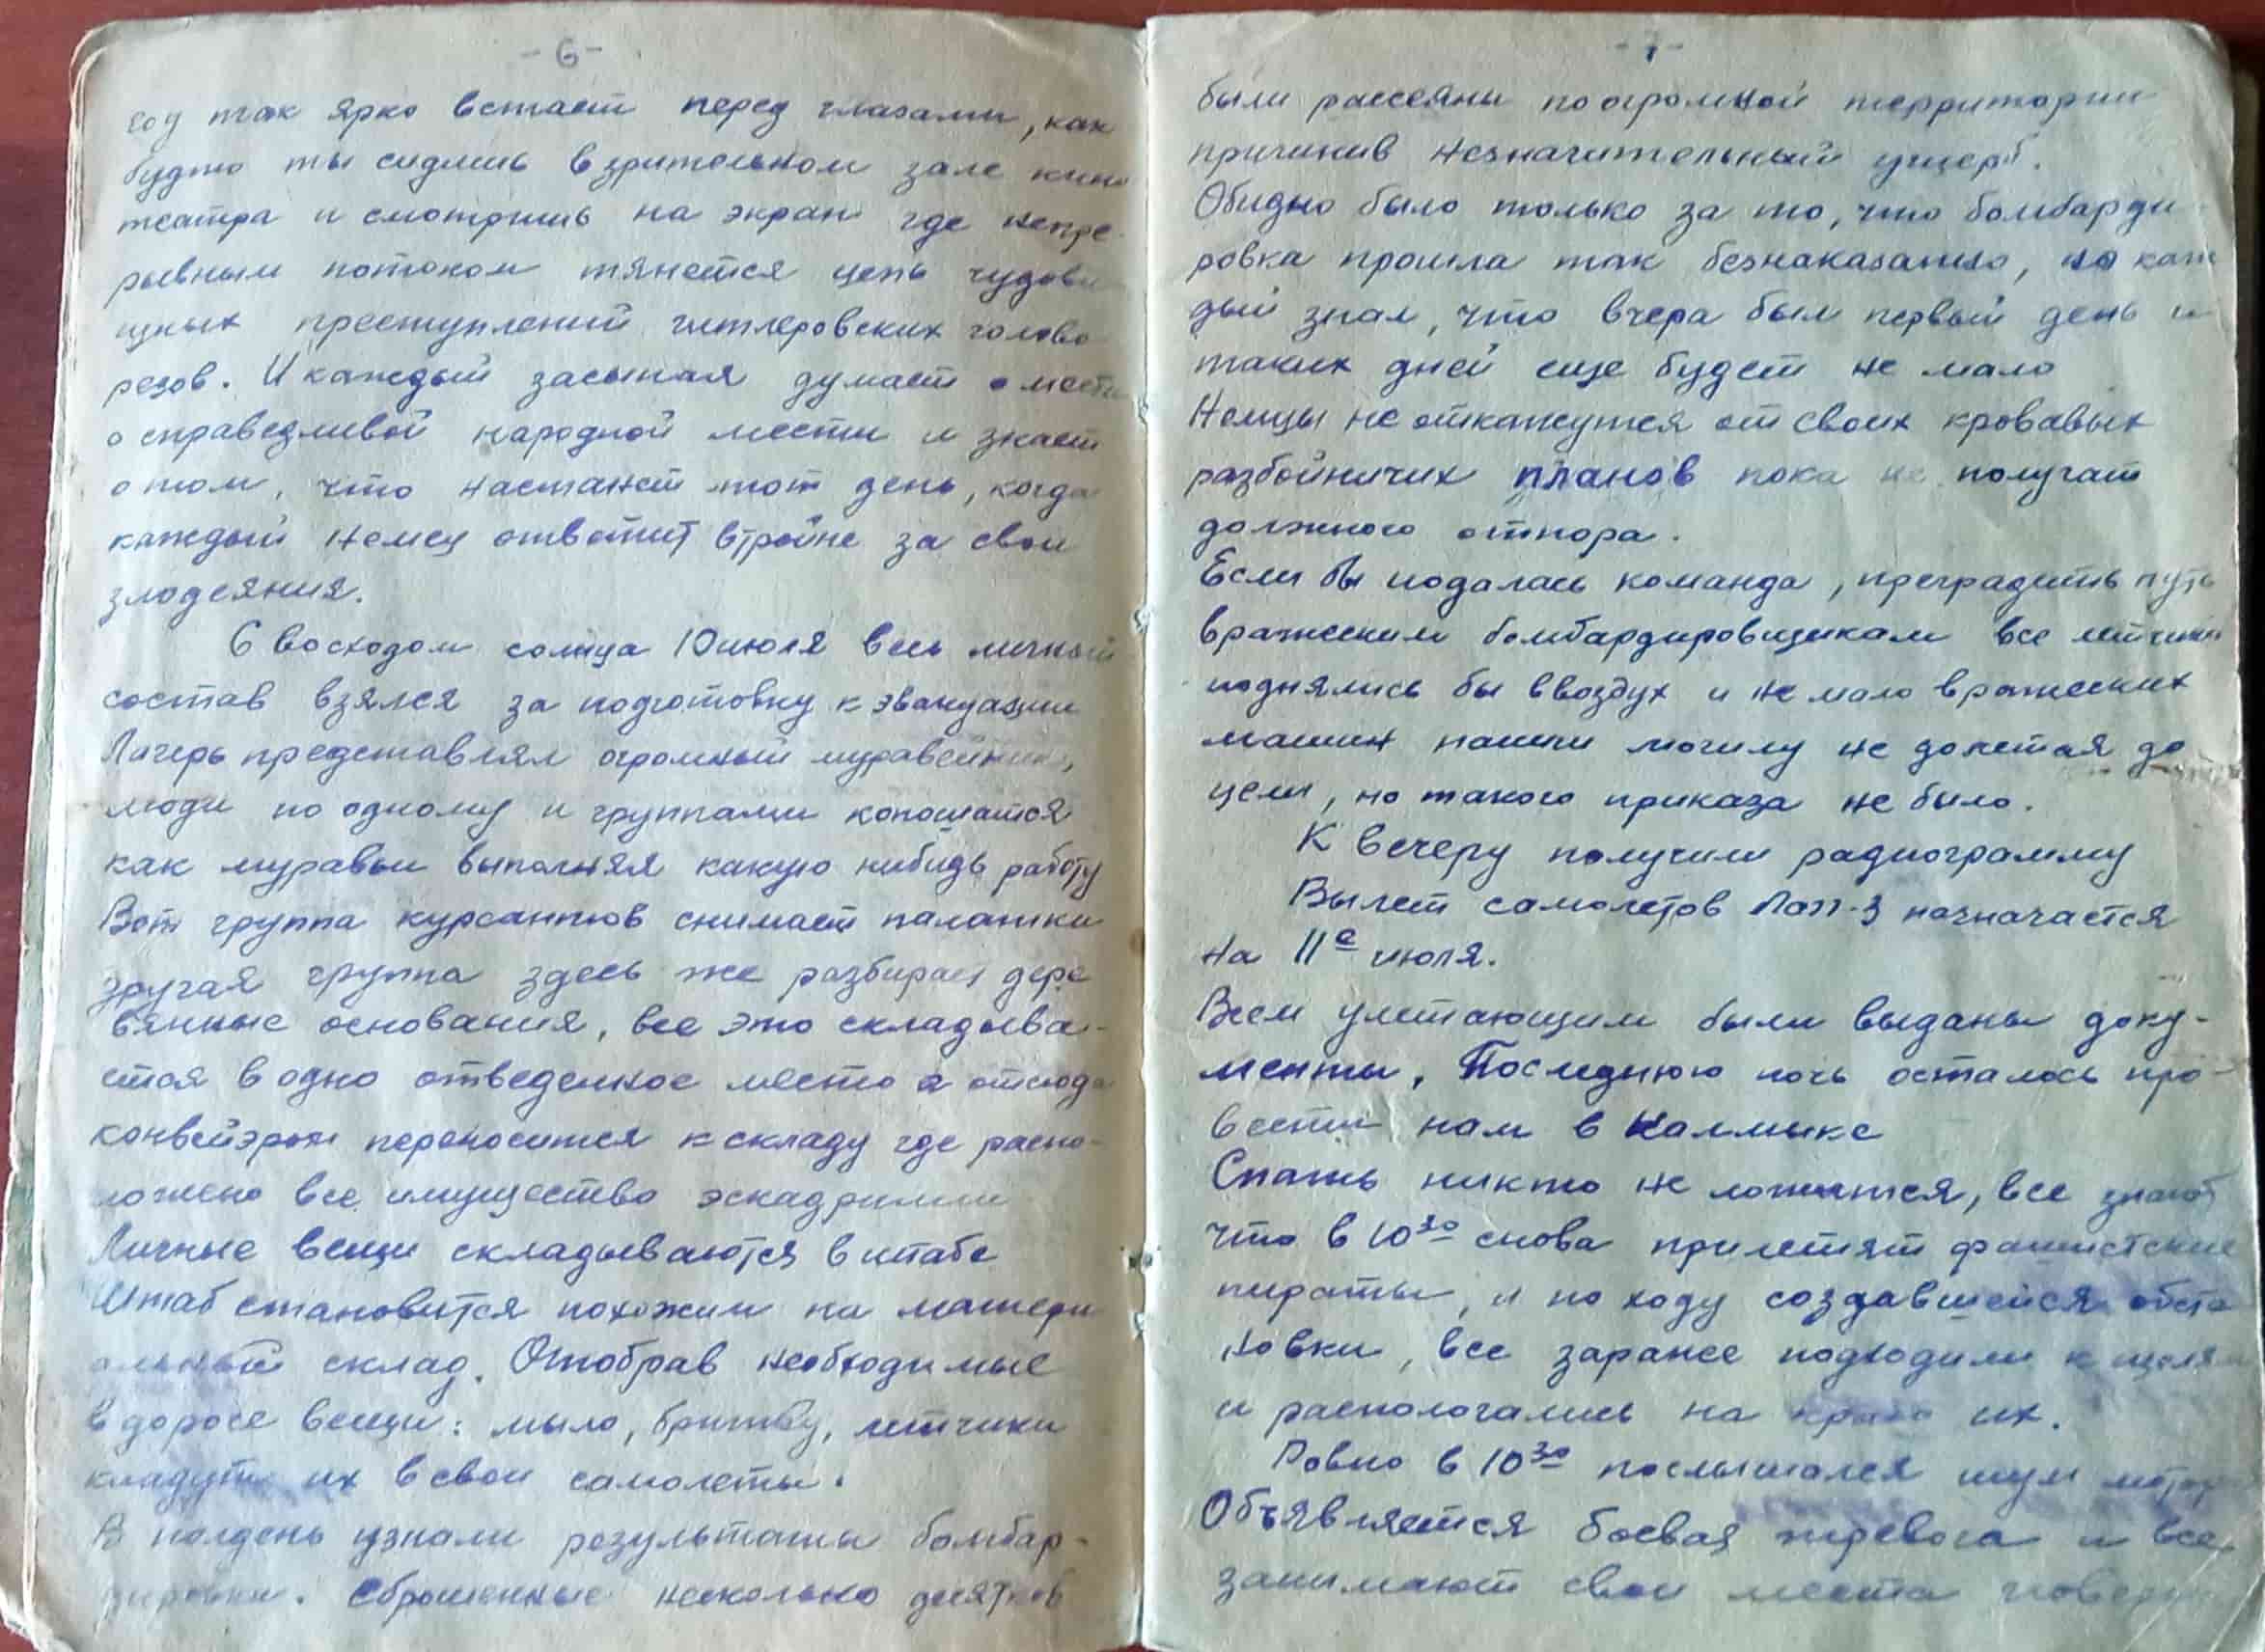 - 6 -
год так ярко встает перед глазами, как
будто ты сидишь в зрительном зале кино
театра и смотришь на экран где непре-
рывным потоком тянется цепь чудови
щных преступлений гитлеровских голово
резов. И каждый засыпая думает о мести
о справедливой народной мести и знает
о том, что настанет тот день, когда
каждый немец ответит втройне за свои
злодеяния.
С восходом солнца 10 июля весь личный
состав взялся за подготовку к эвакуации
Лагерь представлял огромный муравейник,
люди по одному и группами копошатся
как муравьи выполняя какую нибудь работу
Вот группа курсантов снимает палатки
другая группа здесь же разбирает дере
вянные основания, все это складыва-
ется в одно отведенное место а отсюда
конвейэром переносится к складу где распо-
ложено все имущество эскадрильи
Личные вещи складываются в штабе
Штаб становится похожим на матери
альный склад. Отобрав необходимые
в дороге вещи: мыло, бритву, летчики
кладут их в свои самолеты.
В полдень узнали результаты бомбар-
дировки. Сброшенные несколько десятков
- 7 -
были рассеяны по огромной территории
причинив незначительный ущерб.
Обидно было только за то, что бомбарди-
ровка прошла так безнаказанно, но каж
дый знал, что вчера был первый день и
таких дней еще будет не мало
Немцы не откажутся от своих кровавых
разбойничих планов пока не получат
должного отпора.
Если бы подалась команда, преградить путь
вражеским бомбардировщикам все летчики
поднялись бы в воздух и не мало вражеских
машин нашли могилу не долетая до
цели, но такого приказа не было.
К вечеру получили радиограмму
Вылет самолетов Лагг-3 назначается
на 11е июля.
Всем улетающим были выданы доку-
менты, Последнюю ночь осталось про-
вести нам в Калмыке
Спать никто не ложится, все знают
что в 10 30 снова прилетят фашистские
пираты, и по ходу создавшейся обста
новки, все заранее подходили к щелям
и распологались на краю их.
Ровно в 10 30 послышался шум мотор
Объявляется боевая тревога и все
занимают свои места